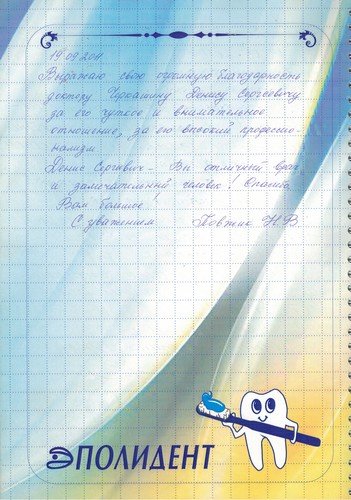 19.09.2011
Выражаю свою огромную благодарность
доктору Черкашину Денису Сергеевичу
за его чуткое и внимательное
отношение, за его высокий профессио-
нализм.
Денис Сергеевич - Вы отличный врач
и замечательный человек! Спасибо
Вам большое!
С уважением Н.В.
ЭПОЛИДЕНТ